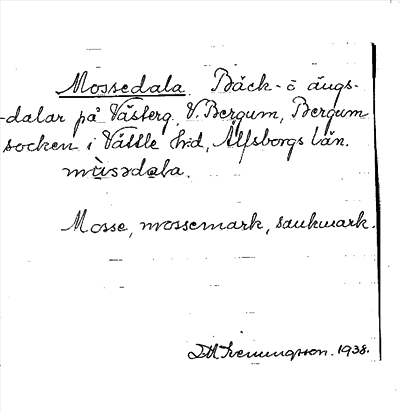 Mossedala. Bäck- o ängs-
-dalar på Västerg. V. Bergum, Bergum
socken i Vättle hd, Älfsborgs län.
mùsədala.
Mosse, mossemark, sankmark.
1938.